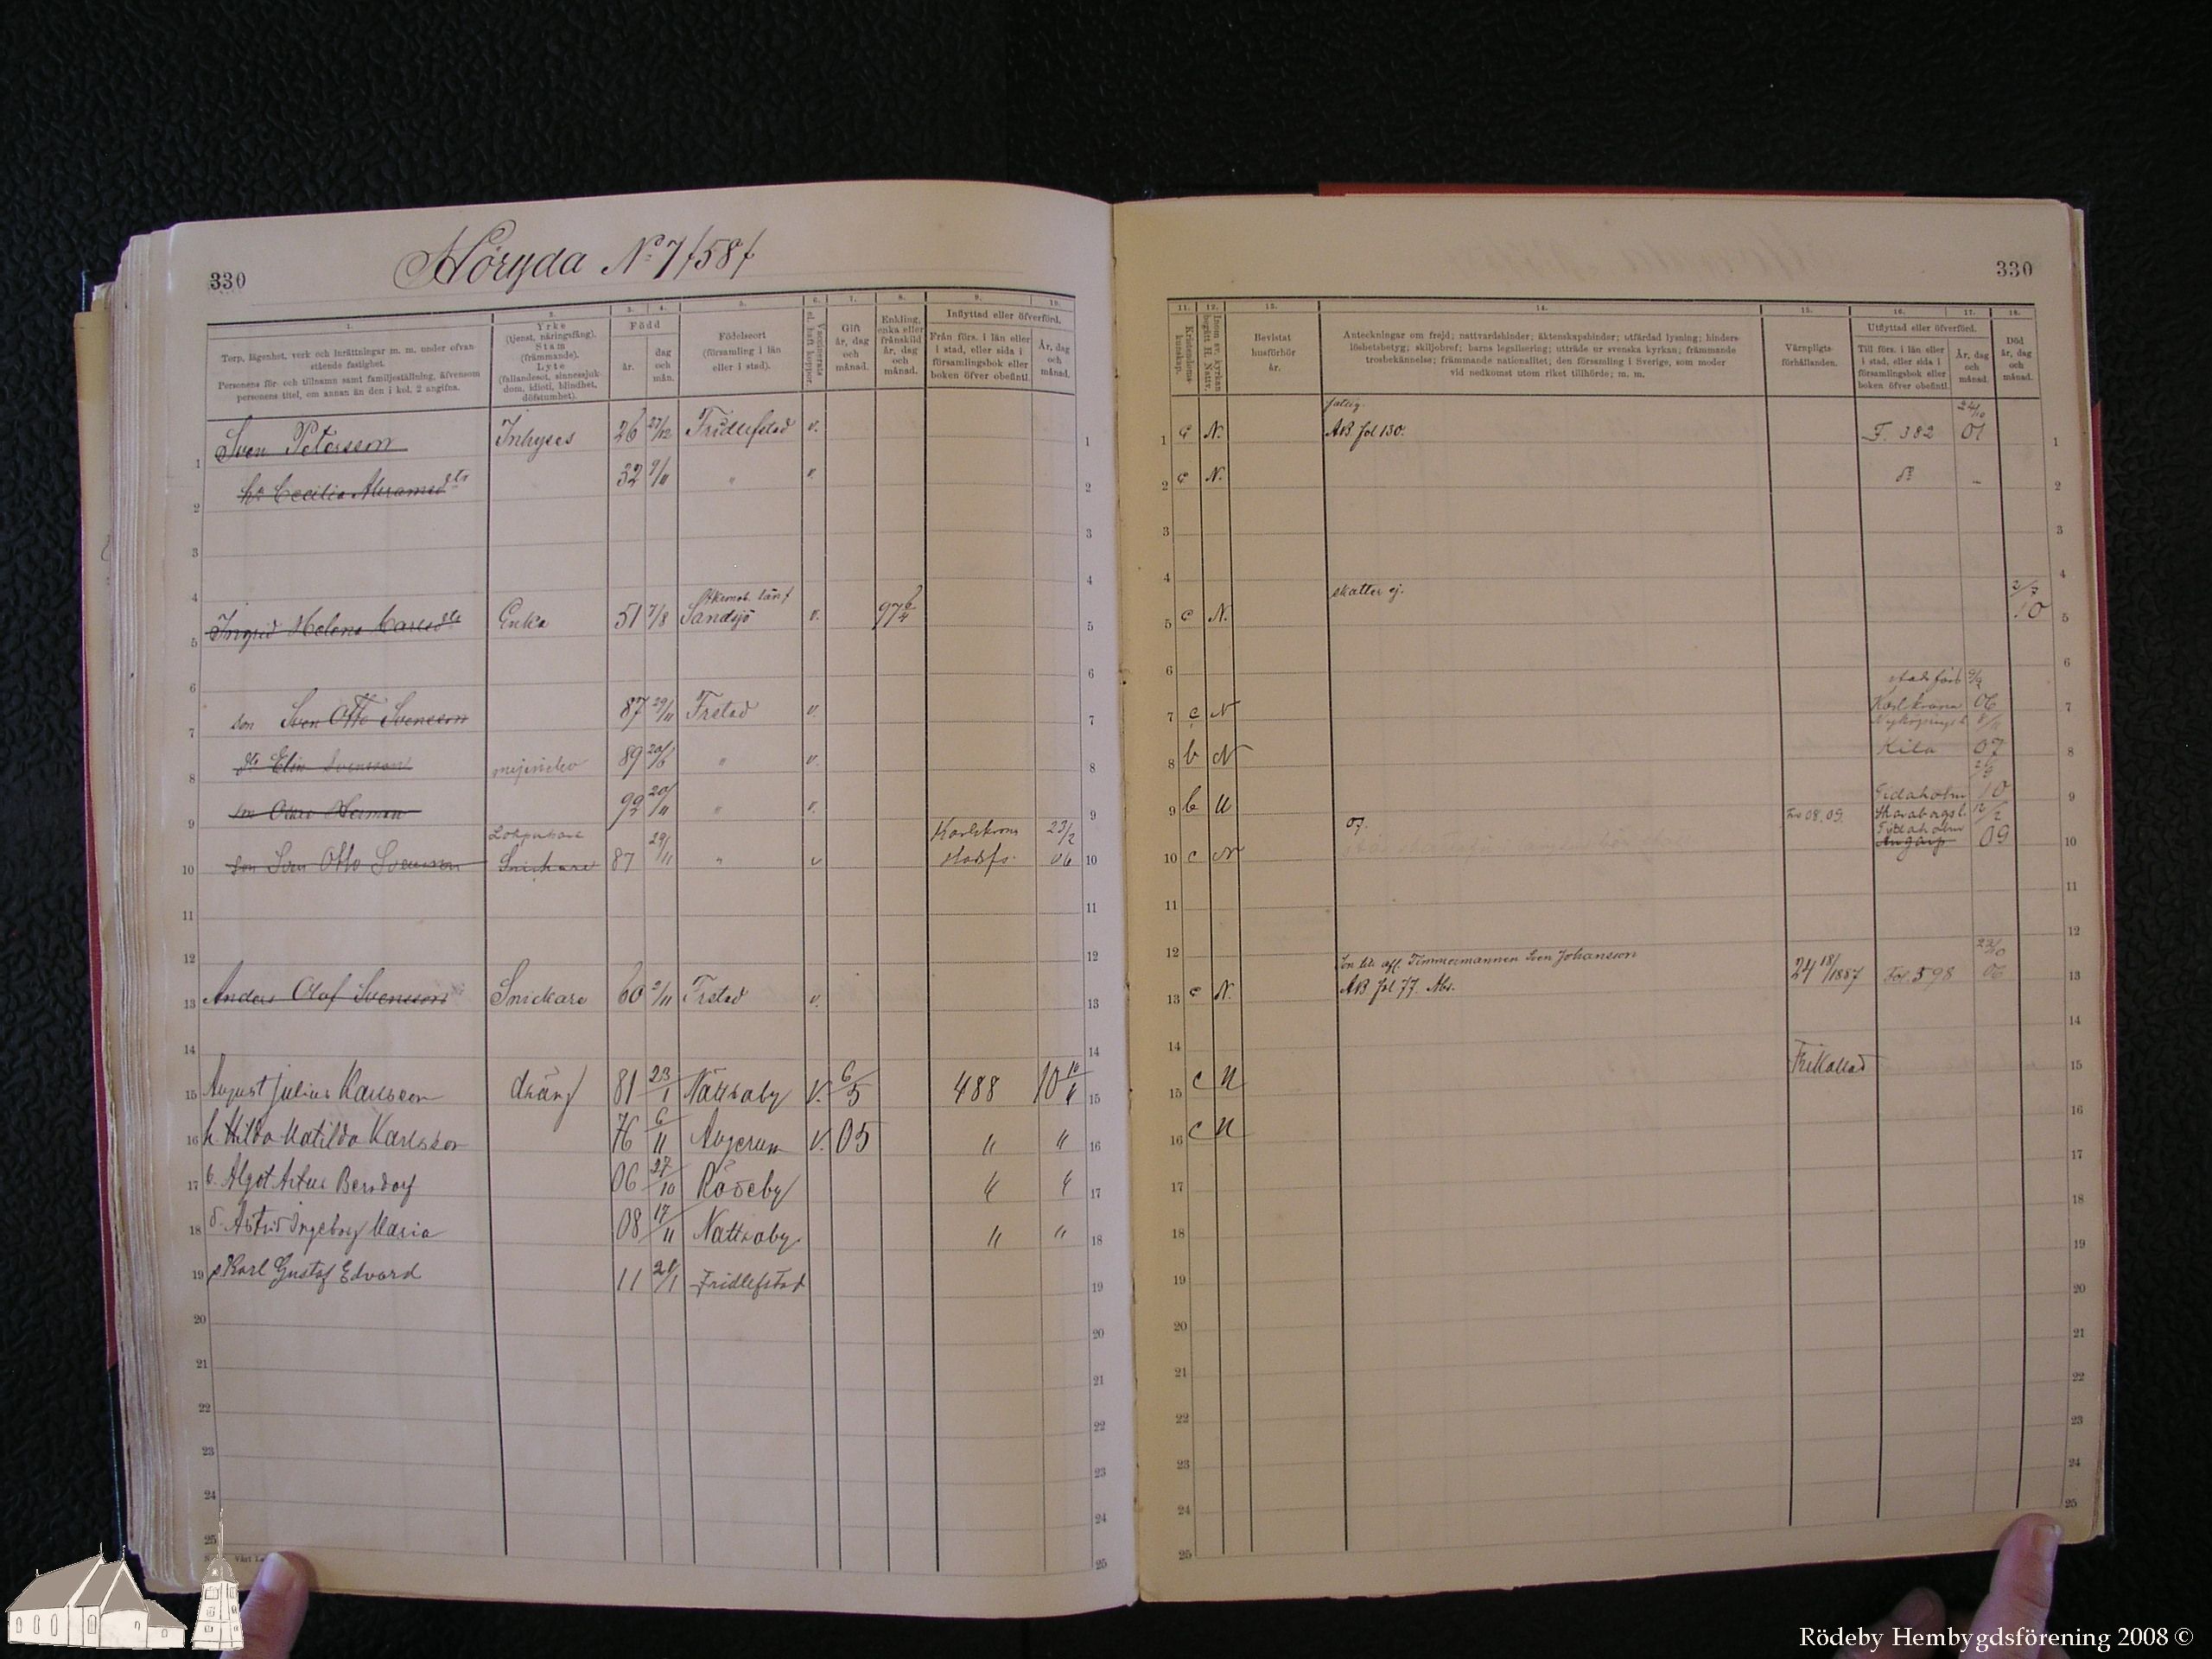 330
Höryda No 7 /58/
1. 2. 3. 4. 5. 6. 7. 8. 9. 10.
Torp, lägenhet, verk och inrättningar m. m. under ofvan
stående fastighet.
Personens för- och tillnamn samt familjeställning, äfvensom
personens titel, om annan än den i kol. 2 angifna.
Yrke
(tjenst, näringsfång).
Stam
(främmande).
Lyte
(fallandesot, sinnessjuk-
dom, idioti, blindhet,
döfstumhet).
Född
år.
dag
och
mån.
Födelseort
(församling i län
eller i stad).
Vaccinerats
el. haft koppor.
Gift
år, dag
och
månad.
Enkling,
enka eller
frånskild
år, dag
och
månad.
Inflyttad eller öfverförd.
Från förs. i län eller
i stad, eller sida i
församlingsbok eller
boken öfver obefintl.
År, dag
och
månad.
1 Sven Petersson Inhyses 26 27/12 Fridlefstad v. 1
2 hu Cecilia Abramsdtr 32 9/11 " v. 2
3 3
4 4
5 Ingrid Helena Carlsdtr Enka 51 7/8 Sandsjö v. 97 6/4 5
6 6
7 son Sven Otto Svensson 87 29/11 Frstad v. 7
8 dtr Elin Svensson 89 20/6 " v. 8
9 son Oskar Herman 92 20/11 " v. 9
Karlskrona 23/2
10 son Sven Otto Svensson Snickare 87 29/11 " v stadsfs. 06 10
11 11
12 12
13 Anders Olof Svensson Snickare 60 2/11 Frstad v. 13
14 14
15 August Julius Karlsson dräng 81 23/1 Nättraby V. 6/5 488 10 10/6 15
16 h. Hilda Matilda Karlsson 76 6/11 Augerum V. 05 " " 16
17 b. Algot Artur Berndorf 06 27/10 Rödeby " " 17
18 d. Astrid Ingeborg Maria 08 17/11 Nättraby " " 18
19 s Karl Gustaf Edvard 11 21/1 Fridlefstad 19
20 20
21 21
22 22
23 23
24 24
25 25
330
11. 12. 13. 14. 15. 16. 17. 18.
Kristendoms-
kunskap.
Inom sv. kyrkan
begått H. Nattv.
Bevistat
husförhör
år.
Anteckningar om frejd; nattvardshinder; äktenskapshinder; utfärdad lysning; hinders-
löshetsbetyg; skiljobref; barns legalisering; utträde ur svenska kyrkan; främmande
trosbekännelse; främmande nationalitet; den församling i Sverige, som moder
vid nedkomst utom riket tillhörde; m. m.
Värnpligts-
förhållanden.
Utflyttad eller öfverförd.
Till förs. i län eller
i stad, eller sida i
församlingsbok eller
boken öfver obefintl.
År, dag
och
månad.
Död
år, dag
och
månad.
fattig. 24/10
1 c N. AB. fol 130. F. 382 01 1
2 c N. do " 2
3 3
4 skatter ej. 4
5 c N. 2/3 10 5
6 6
stadsförs 9/2
7 c N Karlskrona 06 7
Nyköpings l. 8/11
8 b N Kila 07 8
9 b N Tidaholm 10 9
of. Frs 08, 09. Skaraborgs l. 12/2
Tidaholm
10 c N Agnetorp 09 10
11 11
12 Son till afl. Timmermannen Sven Johansson 22/10 12
13 c N. AB. fol 77. Abs. 24 18/1887 Fol. 598 06 13
14 14
15 c N Frikallad 15
16 c N 16
17 17
18 18
19 19
20 20
21 21
22 22
23 23
24 24
25 25
Rödeby Hembygdsförening 2008 ©